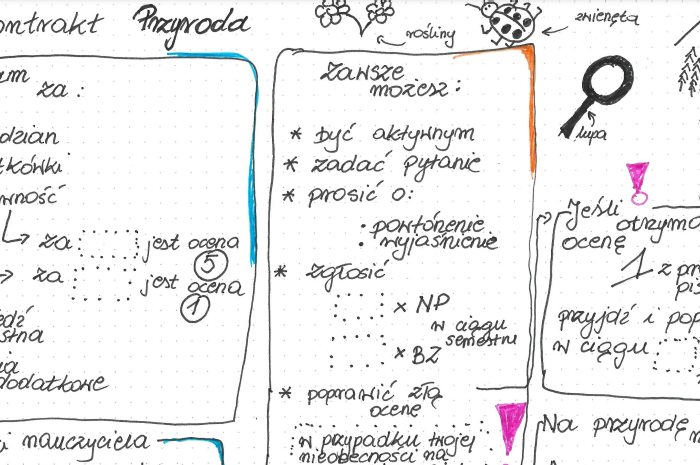 ontrakt Przyroda
rośliny
zwierzęta
lupa
am
za :
dzian
tkówki
wność
za jest ocena
5
za jest ocena
1
edź
stna
ia
dodatkowe
i nauczyciela
Zawsze
możesz :
* być aktywnym
* zadać pytanie
* prosić o:
• powtórzenie
• wyjaśnienie
* zgłosić
x NP
w ciągu
semestru
x BZ
* poprawić złą
ocenę
w przypadku twojej
nieobecności na
!
Jeśli
otrzyma
ocenę
1 z pr
pis
przyjdź i pop
w ciągu
Na przyrodę